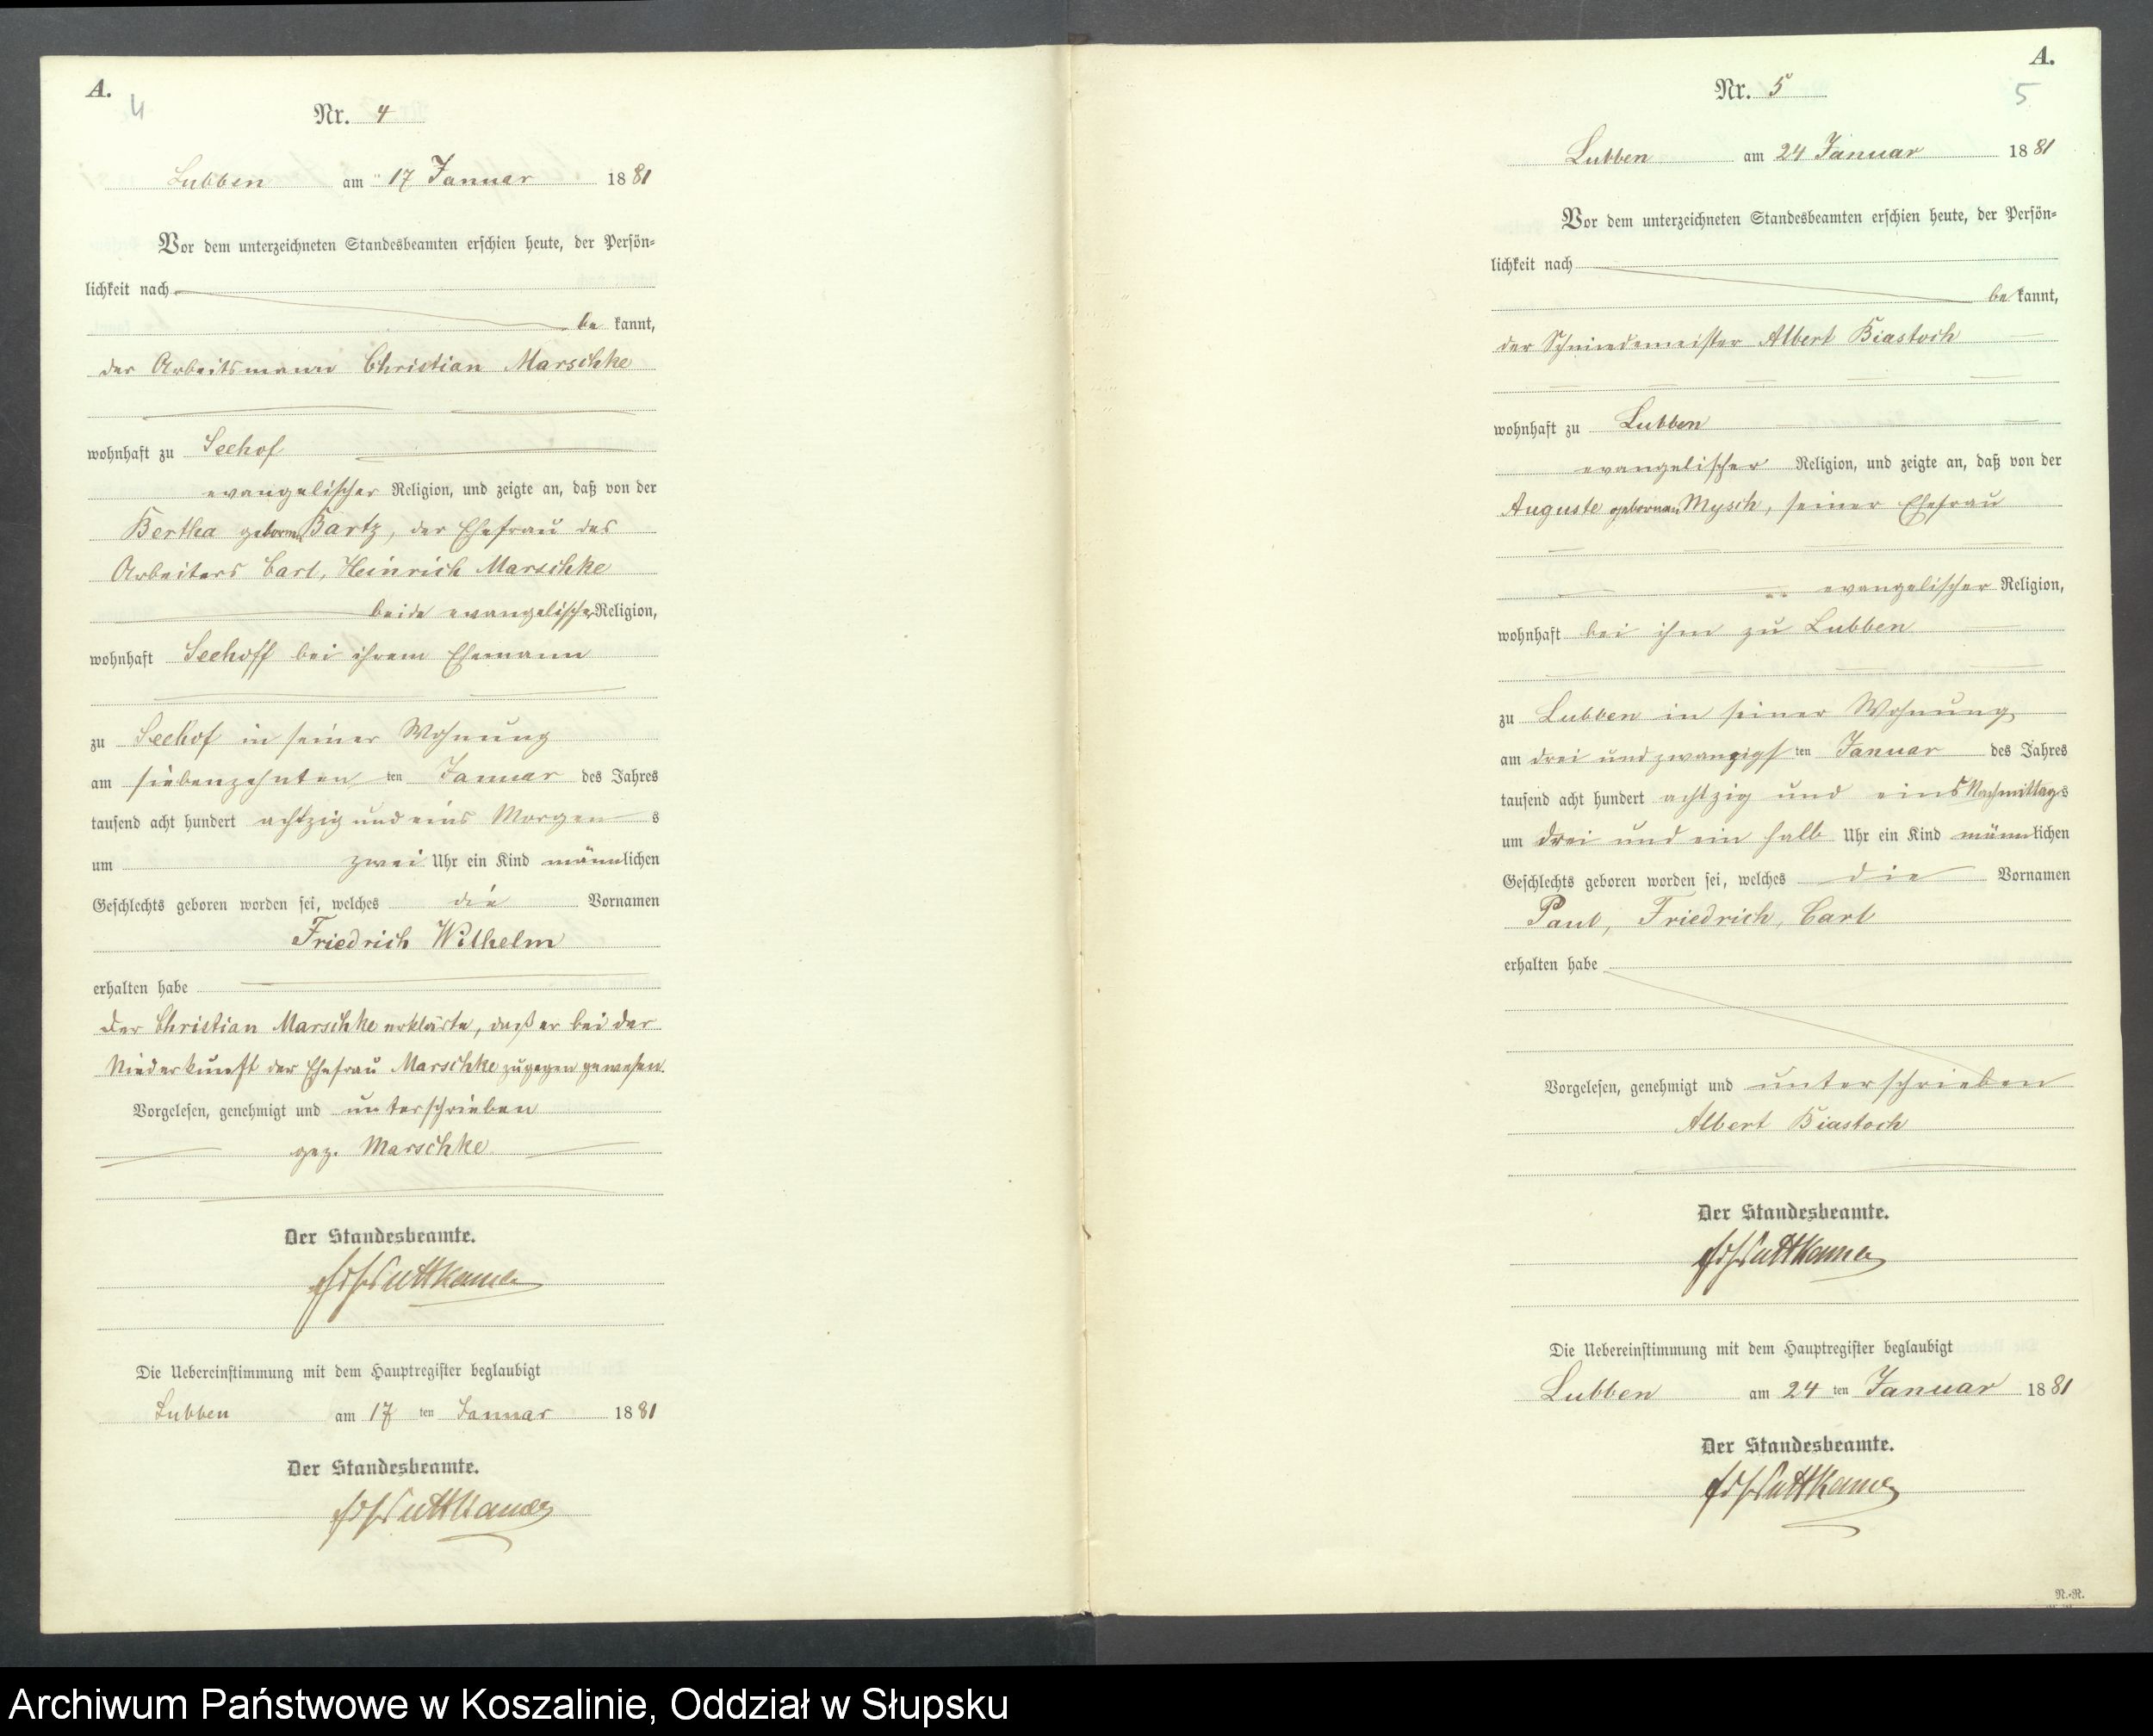 A.
4
Nr. 4
Lubben am 17 Januar 1881
Vor dem unterzeichneten Standesbeamten erschien heute, der Persön=
lichkeit nach
be kannt,
der Arbeitsmann Christian Marschke
wohnhaft zu Seehof
evangelischer Religion, und zeigte an, daß von der
Bertha geborenen Bartz, der Ehefrau des
Arbeiters Carl, Heinrich Marschke
beide evangelischer Religion,
wohnhaft Seehoff bei ihrem Ehemann
zu Seehof in seiner Wohnung
am siebenzehnten ten Januar des Jahres
tausend acht hundert achtzig und eins Morgens
um zwei Uhr ein Kind männlichen
Geschlechts geboren worden sei, welches die Vornamen
Friedrich Wilhelm
erhalten habe
der Christian Marschke erklärte, daß er bei der
Niederkunft der Ehefrau Marschke zugegen gewesen.
Vorgelesen, genehmigt und unterschrieben
gez. Marschke
Der Standesbeamte.
Puttkamer
Die Uebereinstimmung mit dem Hauptregister beglaubigt
Lubben am 17 ten Januar 1881
Der Standesbeamte.
Puttkamer
A.
5
Nr. 5
Lubben am 24 Januar 1881
Vor dem unterzeichneten Standesbeamten erschien heute, der Persön=
lichkeit nach
be kannt,
der Schmiedemeister Albert Biastoch
wohnhaft zu Lubben
evangelischer Religion, und zeigte an, daß von der
Auguste geborenen Mysch, seiner Ehefrau
evangelischer Religion,
wohnhaft bei ihm zu Lubben
zu Lubben in seiner Wohnung
am drei und zwanzigsten Januar des Jahres
tausend acht hundert achtzig und eins Nachmittags
um drei und ein halb Uhr ein Kind männlichen
Geschlechts geboren worden sei, welches die Vornamen
Paul, Friedrich, Carl
erhalten habe
Vorgelesen, genehmigt und unterschrieben
Albert Biastoch
Der Standesbeamte.
Puttkamer
Die Uebereinstimmung mit dem Hauptregister beglaubigt
Lubben am 24 ten Januar 1881
Der Standesbeamte.
Puttkamer
N.-R.
Archiwum Państwowe w Koszalinie, Oddział w Słupsku